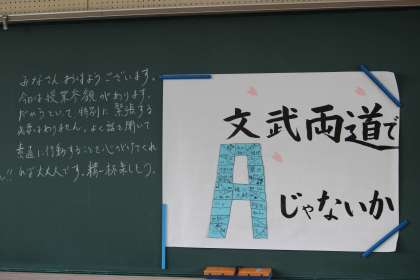 みなさん おはようございます。
今日は授業参観があります。
だからといって 特別に緊張する
必要はありません。よく話を聞いて
素直に行動することを心がけてくれ
れば大丈夫です。精一杯楽しもう。
文武両道で
A じゃないか